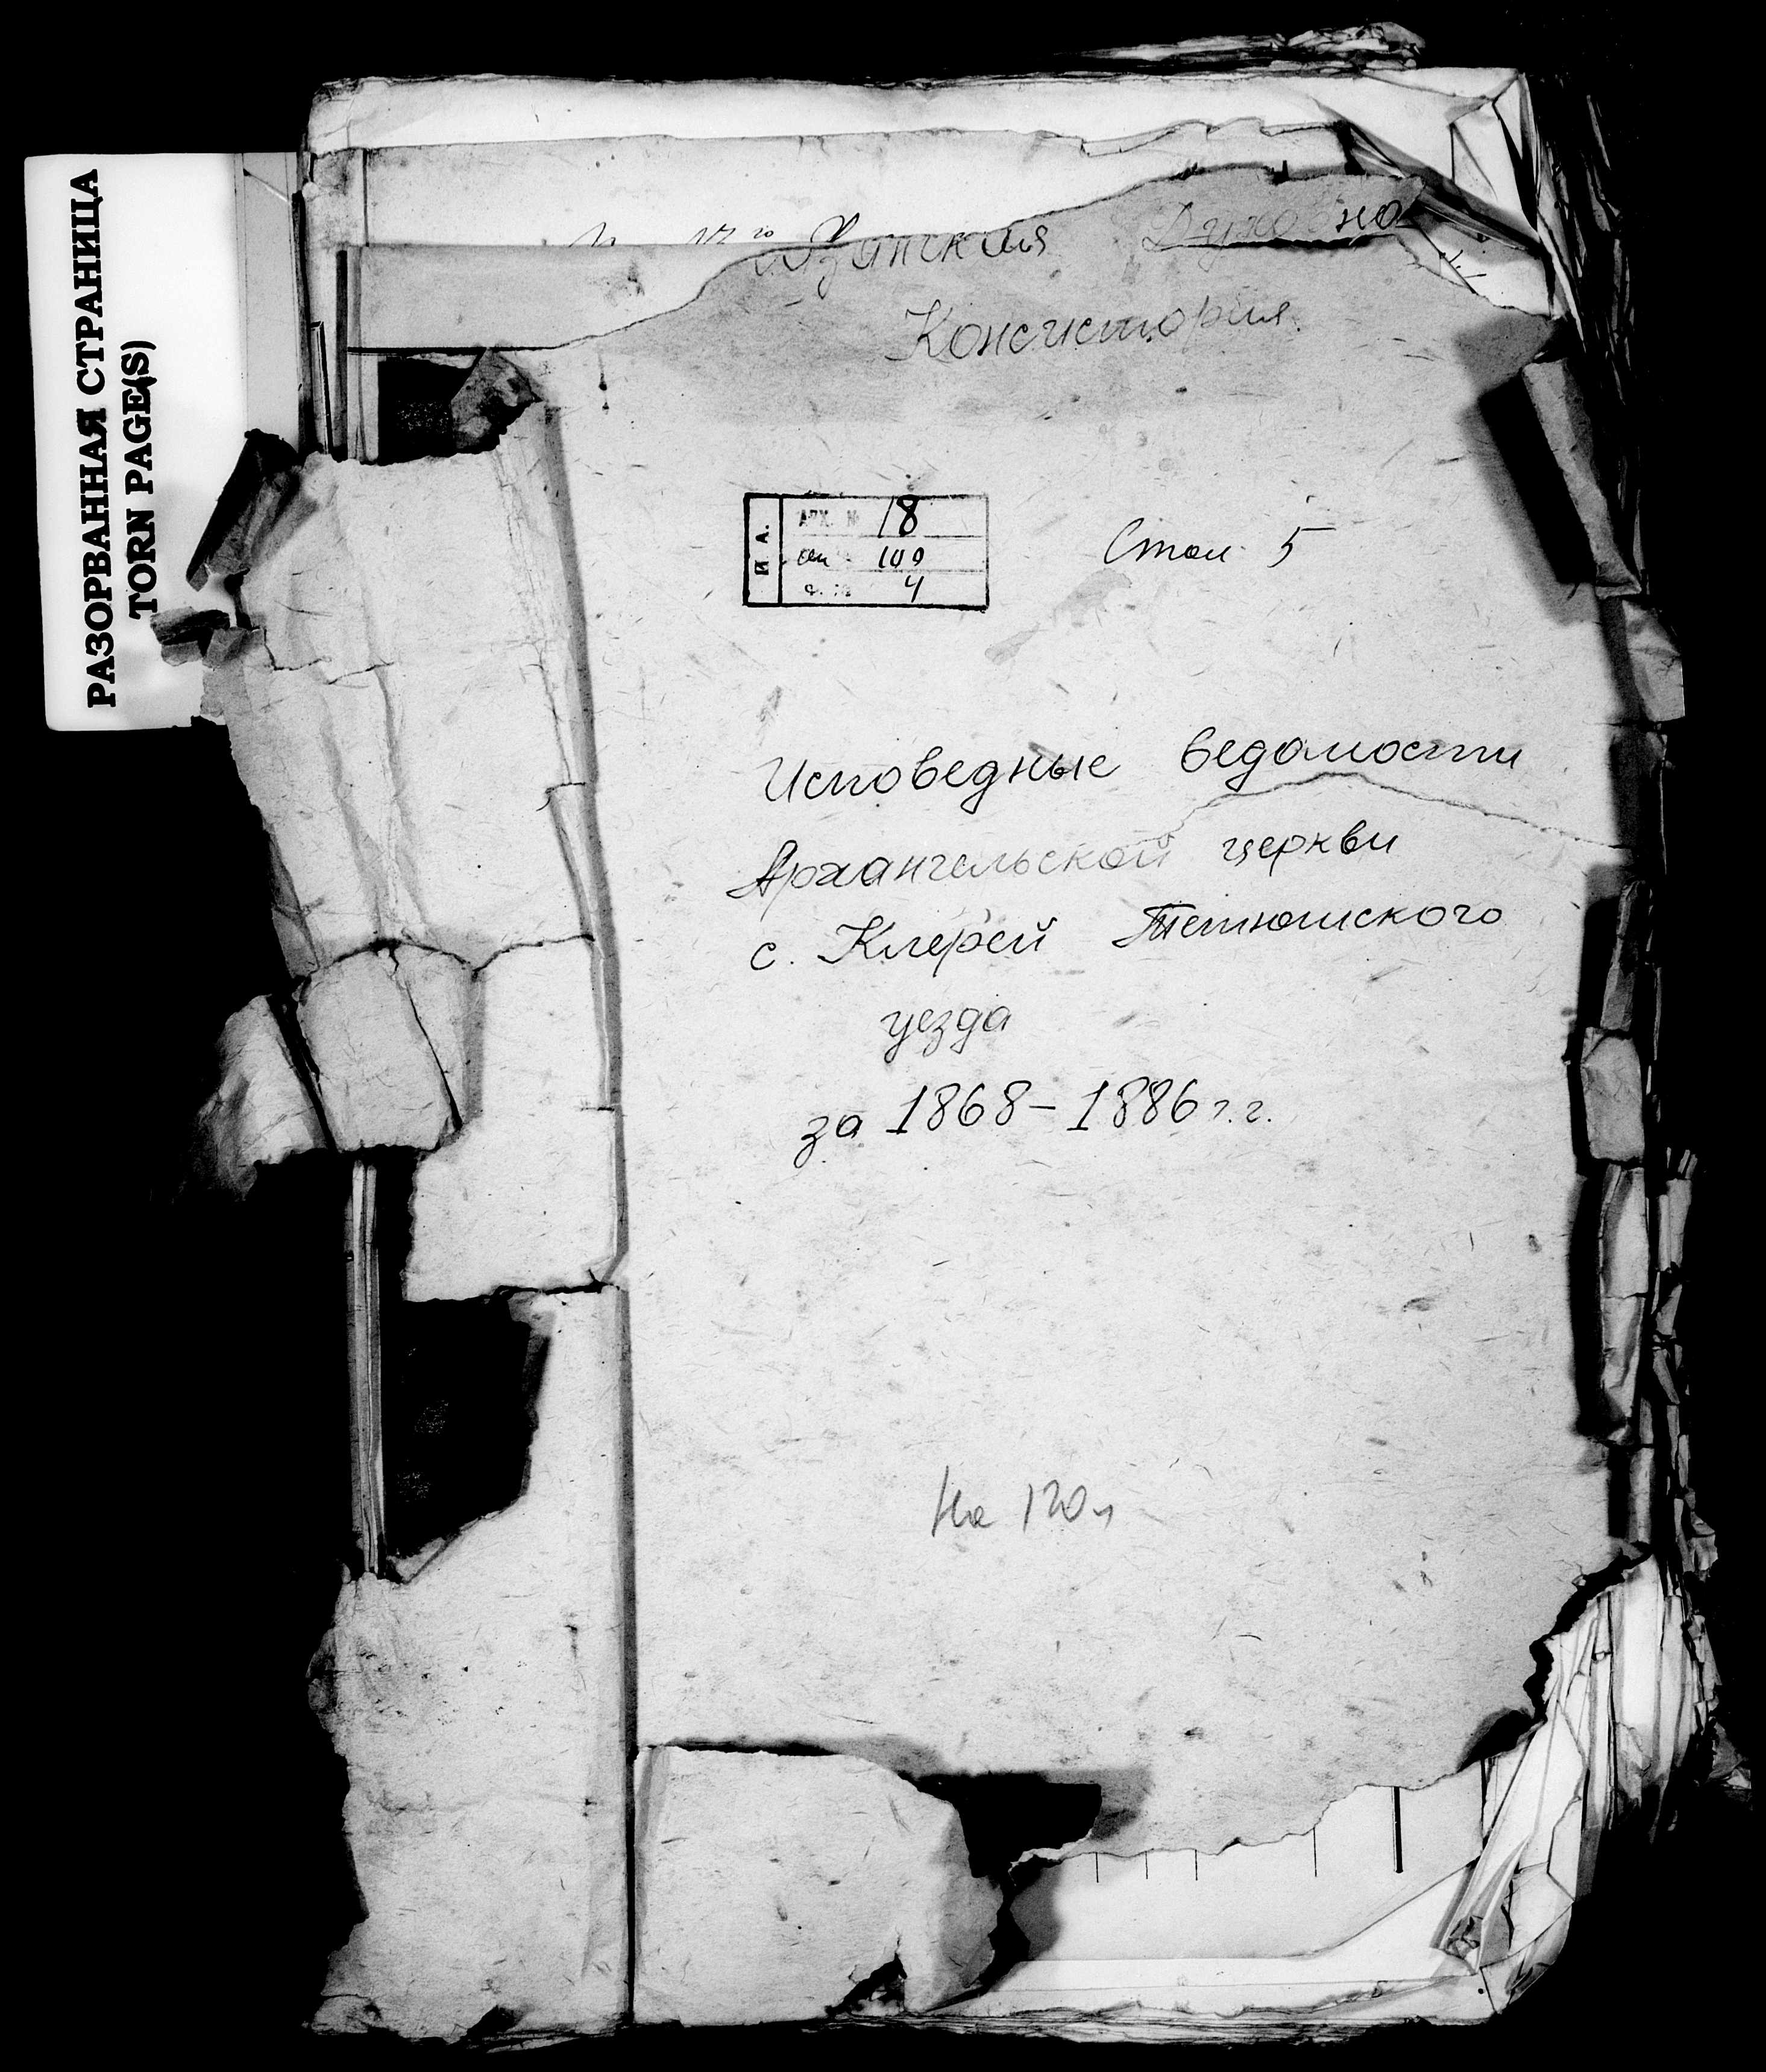 РАЗОРВАННАЯ СТРАНИЦА
TORN PAGE(S)
Консистория.
И. А.
АРХ. № 18
оп 109
Ф. № 4
Стол 5
Исповедные ведомости
Архангельской церкви
с. Клерей Тетюшского
уезда
за 1868-1886 г.г.
На 120 л